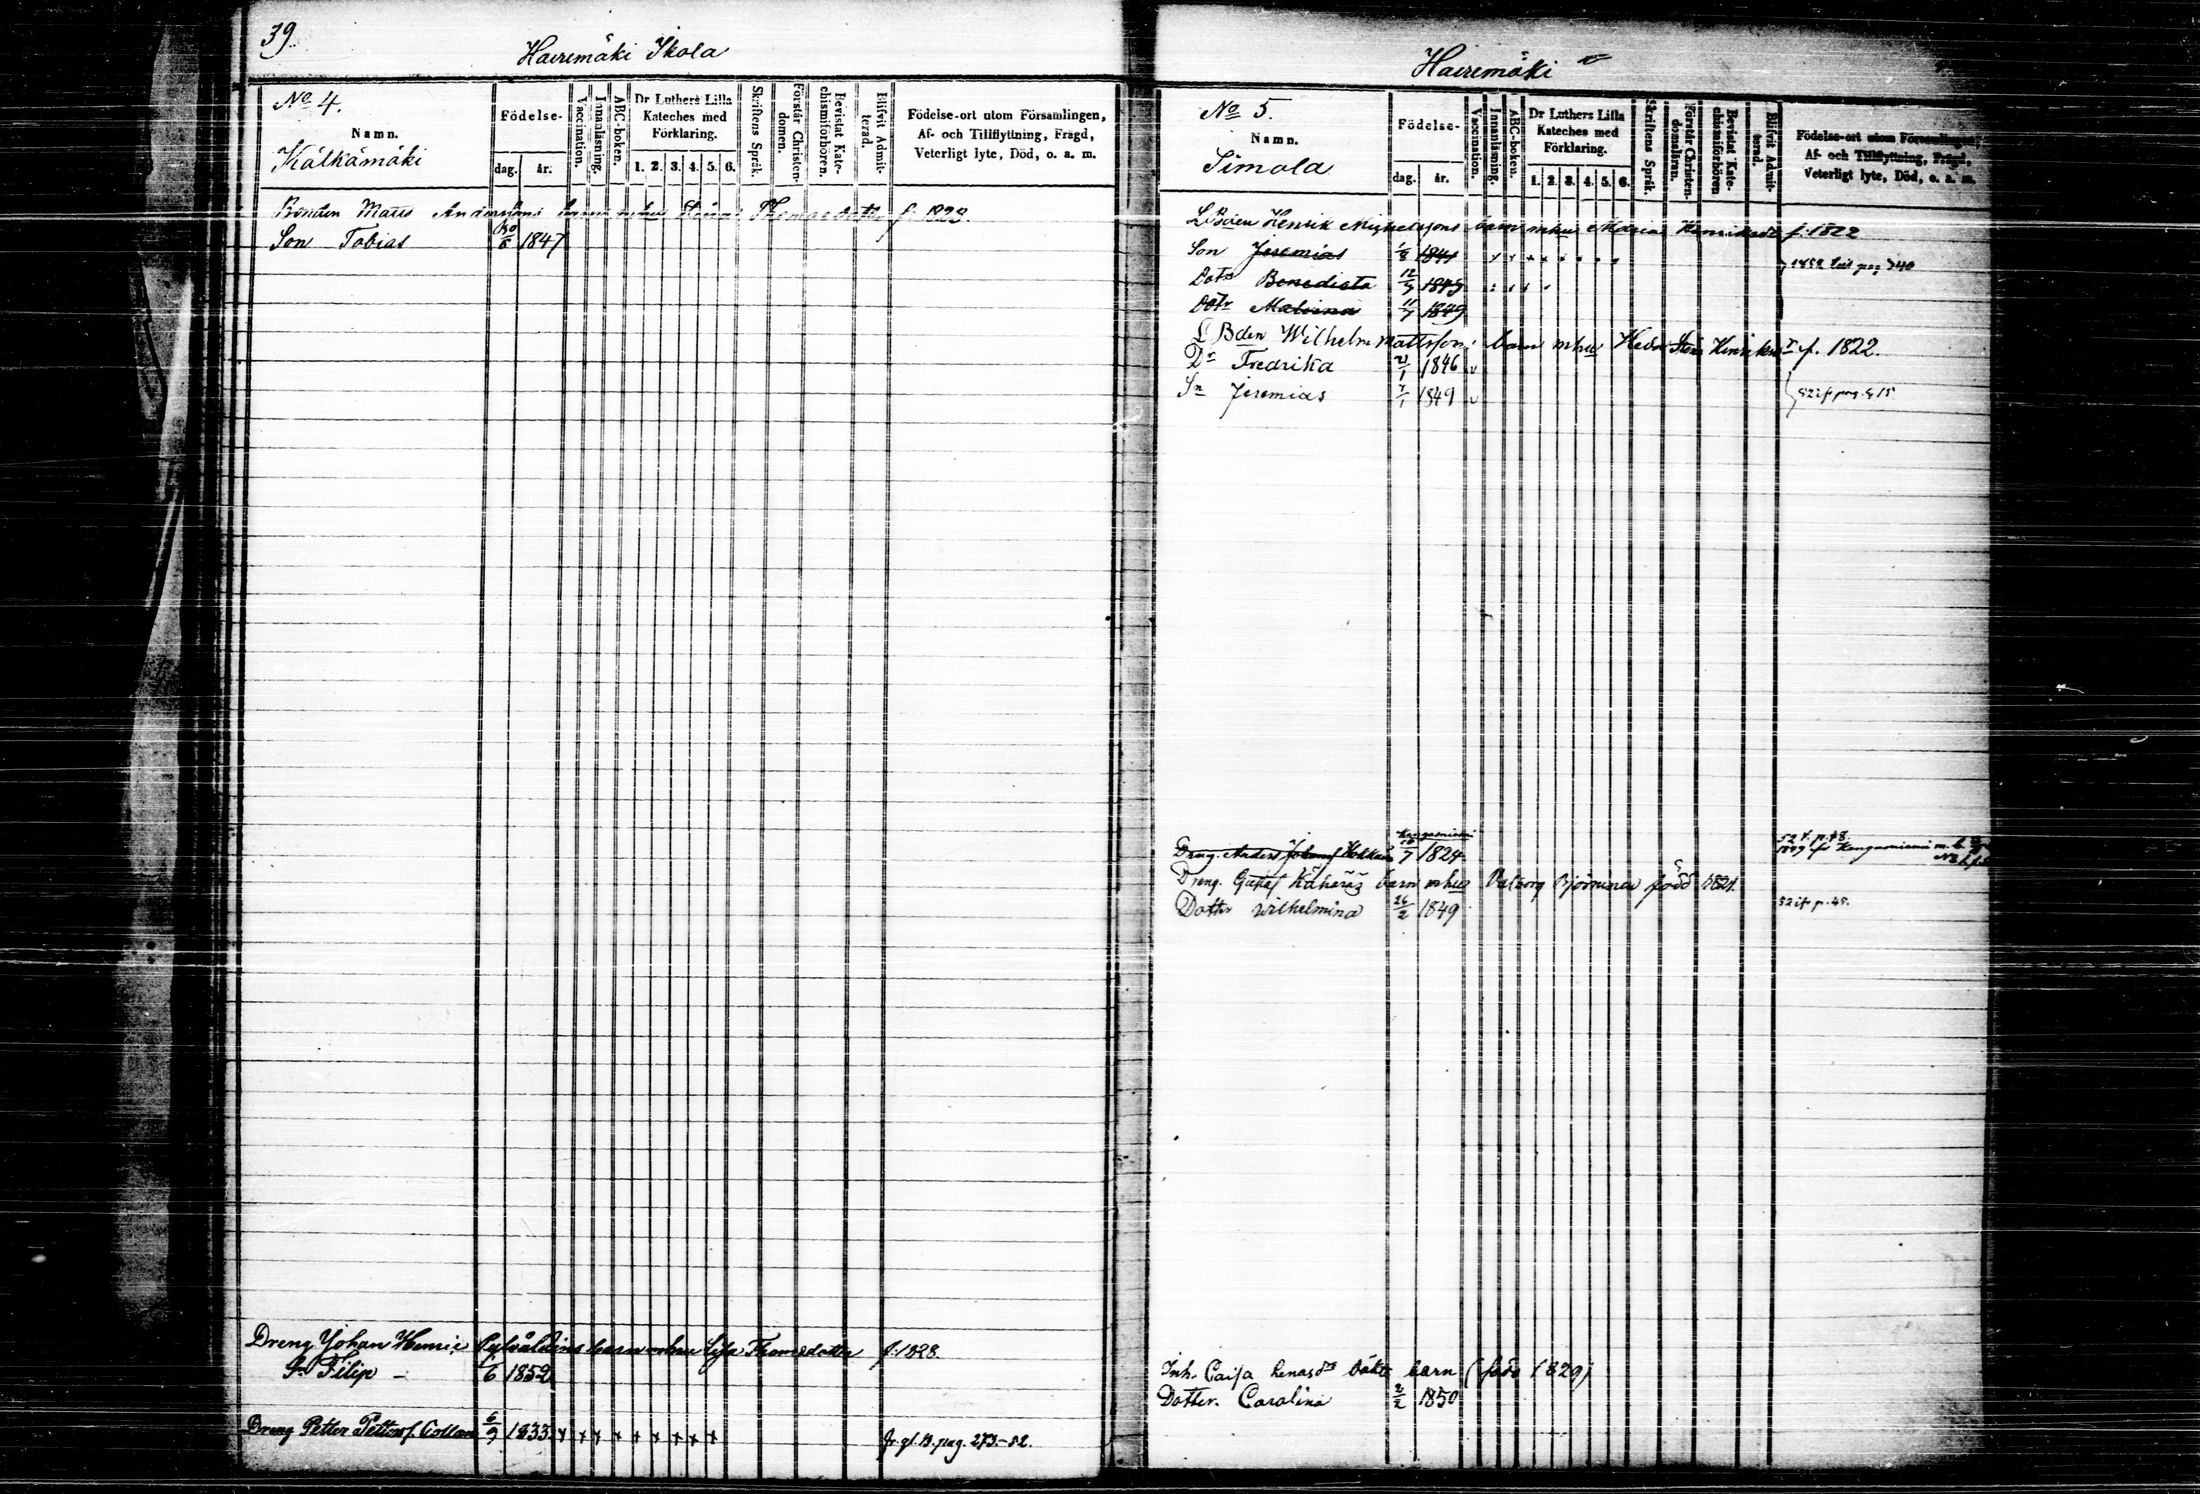 39
Haeremäki Skola
No 4.
Namn.
Kälkämäki
Födelse-
dag. år.
Vaccination.
Innanläsning.
ABC-boken.
Dr Luthers Lilla
Kateches med
Förklaring.
1. 2. 3. 4. 5. 6.
Skriftens Språk.
Förstår Christen-
domen.
Bevistat Kate-
chismiförhören.
Blifvit Admit-
terad.
Födelse-ort utom Församlingen,
Af- och Tillflyttning, Frägd,
Veterligt lyte, Död, o. a. m.
Bonden Matts Anderssons barn mhu Thomasdotter f. 1828.
Son Tobias 1847
Dreng Johan Henric barn mhu Lisa Thomsdotter f. 1828.
Sn Filip - 1/6 1852
Dreng Petter Petterss. Collan 6/9 1833 x x x x x x x x x
fr. gl. B. pag. 273.-52.
Haeremäki
No 5.
Namn.
Simola
Födelse-
dag. år.
Vaccination.
Innanläsning.
ABC-boken.
Dr Luthers Lilla
Kateches med
Förklaring.
1. 2. 3. 4. 5. 6.
Skriftens Språk.
Förstår Christen-
domsläran.
Bevistat Kate-
chismiförhören
Blifvit Admit-
terad.
Födelse-ort utom Församlingen,
Af- och Tillflyttning, Frägd,
Veterligt lyte, Död, o. a. m.
Henrik Michelssons barn mhu Maria Henriksdr f. 1822
Son Jeremias 1/8 1841
Dotr Benedicta 12/9 1845
Dotr Malvina 11/7 1849
L Bden Wilhelm Mattsson barn mhu Hedv Henriksdr f. 1822.
Dr Fredrika 21/1 1846
Sn Jeremias 7/1 1849
Kangasniemi
Dreng. Anders Johanss Hokkain 10/7 1824
Dreng. Gustaf Kähärä's barn mhu Valborg Björninen född 1821.
Dotter Wilhelmina 26/2 1849
52 if p. 45.
Inh. Caisa Lenasdr oäkta barn (född 1829)
Dotter. Carolina 2/2 1850